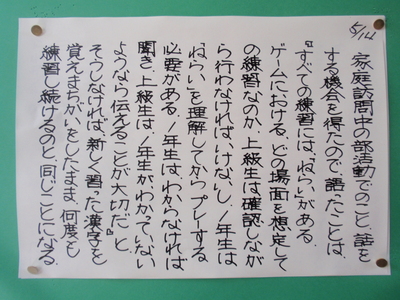 5/14
家庭訪問中の部活動でのこと、話を
する機会を得たので、語ったことは、
『すべての練習には、「ねらい」がある。
ゲームにおける、どの場面を想定して
の練習なのか、上級生は確認しなが
ら行わなければいけないし、1年生は
ねらい」を理解してからプレーする
必要がある。1年生は、わからなければ
聞き、上級生は、1年生がわかっていない
ようなら伝えることが大切だ』と。
そうしなければ、新しく習った漢字を
覚えまちがいをしたまま、何度も
練習し続けるのと、同じことになる。